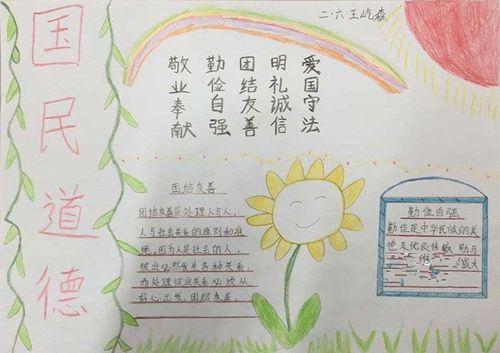 国民道德
二·六 王屹森
爱国守法
明礼诚信
团结友善
勤俭自强
敬业奉献
团结友善
团结友善是处理人与人,
人与社会关系的原则和准
绳,因为人是社会的人,
彼此必然发生各种关系,
而处理彼此关系必须从
好心出发,团结友善。
勤俭自强
勤俭是中华民族的美
德及优良传统,勤与